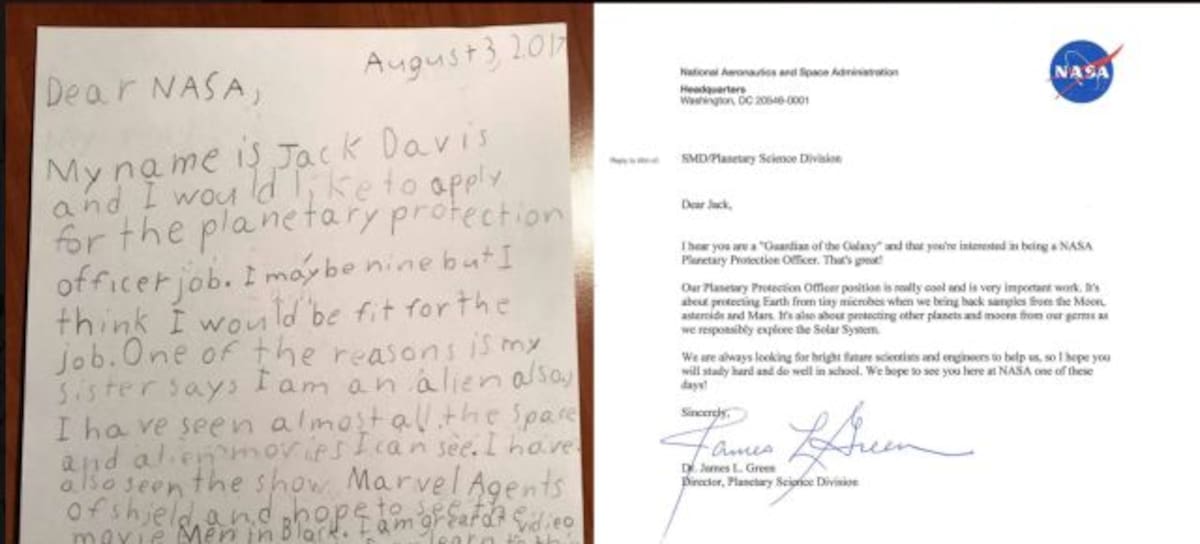 August 3, 2017
Dear NASA,
My name is Jack Davis
and I would like to apply
for the planetary protection
officer job. I may be nine but I
think I would be fit for the
job. One of the reasons is my
sister says I am an alien also,
I have seen almost all the space
and alien movies I can see. I have
also seen the show Marvel Agents
of shield and hope to see the
movie Men in Black. I am great at video
National Aeronautics and Space Administration
Headquarters
Washington, DC 20546-0001
NASA
Reply to Attn of:
SMD/Planetary Science Division
Dear Jack,
I hear you are a "Guardian of the Galaxy" and that you're interested in being a NASA
Planetary Protection Officer. That's great!
Our Planetary Protection Officer position is really cool and is very important work. It's
about protecting Earth from tiny microbes when we bring back samples from the Moon,
asteroids and Mars. It's also about protecting other planets and moons from our germs as
we responsibly explore the Solar System.
We are always looking for bright future scientists and engineers to help us, so I hope you
will study hard and do well in school. We hope to see you here at NASA one of these
days!
Sincerely,
James L Green
Dr. James L. Green
Director, Planetary Science Division